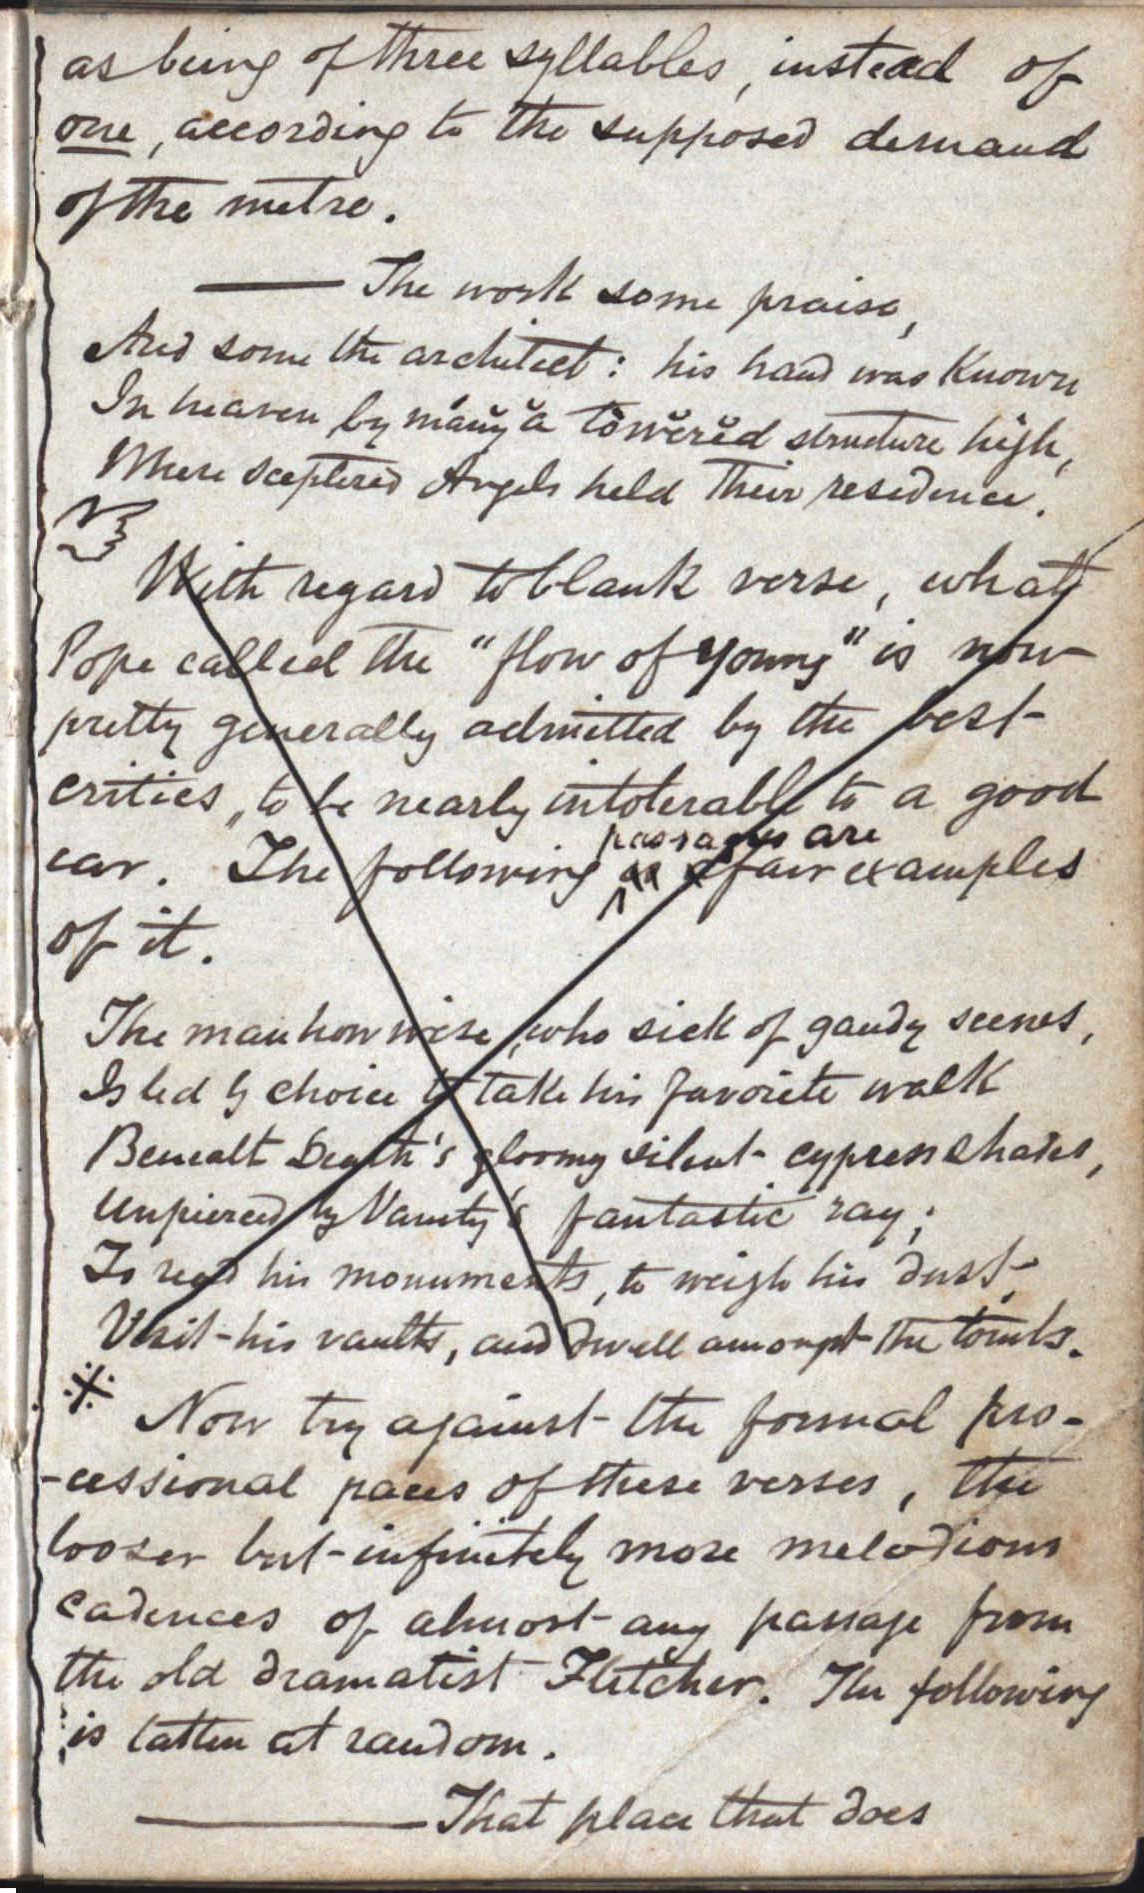 as being of three syllables, instead of
one, according to the supposed demand
of the metre.
—— The work some praise,
And some the architect: his hand was known
In heaven by mány̆ ă tŏwĕrĕd structure high,
Where sceptered Angels held their residence.
☞
With regard to blank verse, what
Pope called the "flow of Young" is now
pretty generally admitted by the best
critics, to be nearly intolerable to a good
passages are
ear. The following fair examples
of it.
The man how wise, who sick of gaudy scenes,
Is led by choice to take his favorite walk
Beneath Death's gloomy silent cypress shades,
Unpierced by Vanity's fantastic ray;
To read his monuments, to weigh his dust,
Visit his vaults, and dwell amongst the tombs.
※ Now try against the formal pro-
-cessional paces of these verses, the
looser but infinitely more melodious
cadences of almost any passage from
the old dramatist Fletcher. The following
is taken at random.
——— That place that does